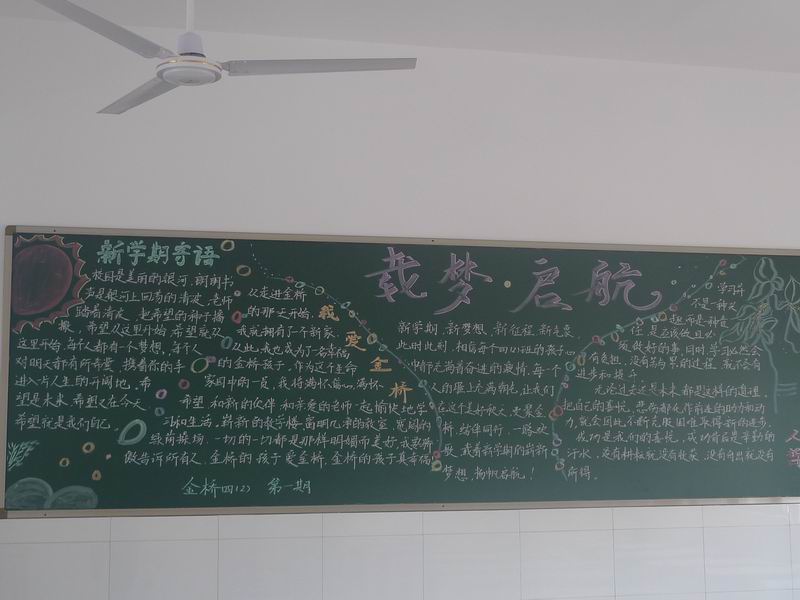 新学期寄语
校园是美丽的银河,朗朗书
声是银河上回荡的清波,老师
踏着清波,把希望的种子播
撒,希望从这里开始,每个人
这里开始,每个人都有一个梦想,每个人
对明天都有所希冀,携着你的手
进入
望是未来,希望从在今天,
希望就是我们自己。
我爱金桥
从走进金桥
的那天开始,
我就拥有了个新家
从此,我也成为了一名幸福
的金桥孩子,作为这个生命
家园中的一员,我将满怀信心,满怀
希望,和新的伙伴和亲爱的老师一起愉快地学
习和生活,崭新的教学楼,窗明几净的教室,宽阔的
绿茵操场,一切的一切都是那样明媚而美好,我要骄
傲告诉所有人,金桥的孩子爱金桥,金桥的孩子真幸福
金桥四(2) 第一期
载梦·启航
新学期、新梦想、新征程、新气象
此时此刻,相信每个四(2)班的孩子心
中都充满着奋进的激情,每一个
人的眼上充满朝气,让我们
在这个美好校园
桥,结伴同行,一路欢
歌,载着新学期的崭新
梦想,扬帆启航!
学习并
不是一种
须做好的事,同时,学习必然会
有急担,没有苦与累的过程,就不会有
进步和提升
无论过去还是未来,都是这样的道理,
把自己的喜悦,悲伤都化作前进的助力和动
力,就会因此不断克服困难取得新的进步,
成功是我们的喜悦,成功背后是辛勤的
汗水,没有耕耘就没有收获,没有付出就没有
所得。